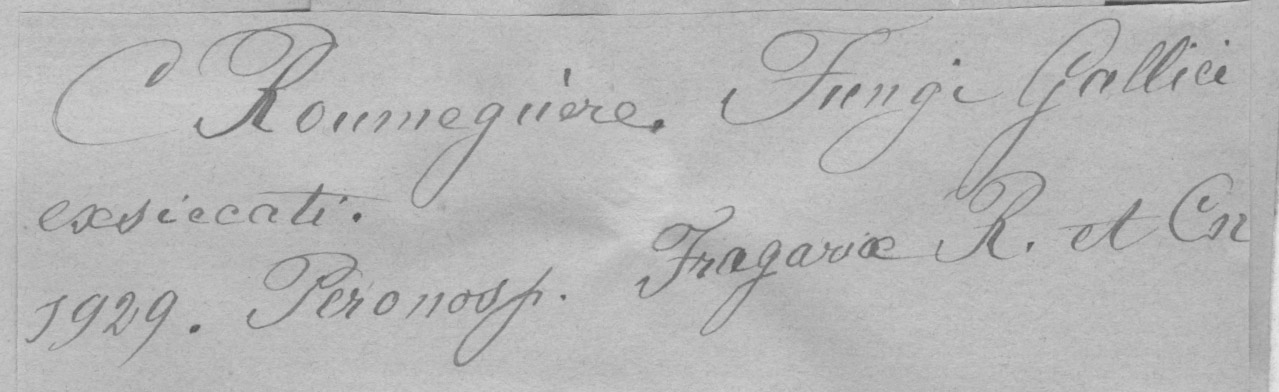 C Roumeguère. Fungi Gallici
exsiccati.
1929. Peronosp. Fragariæ R. et Cn